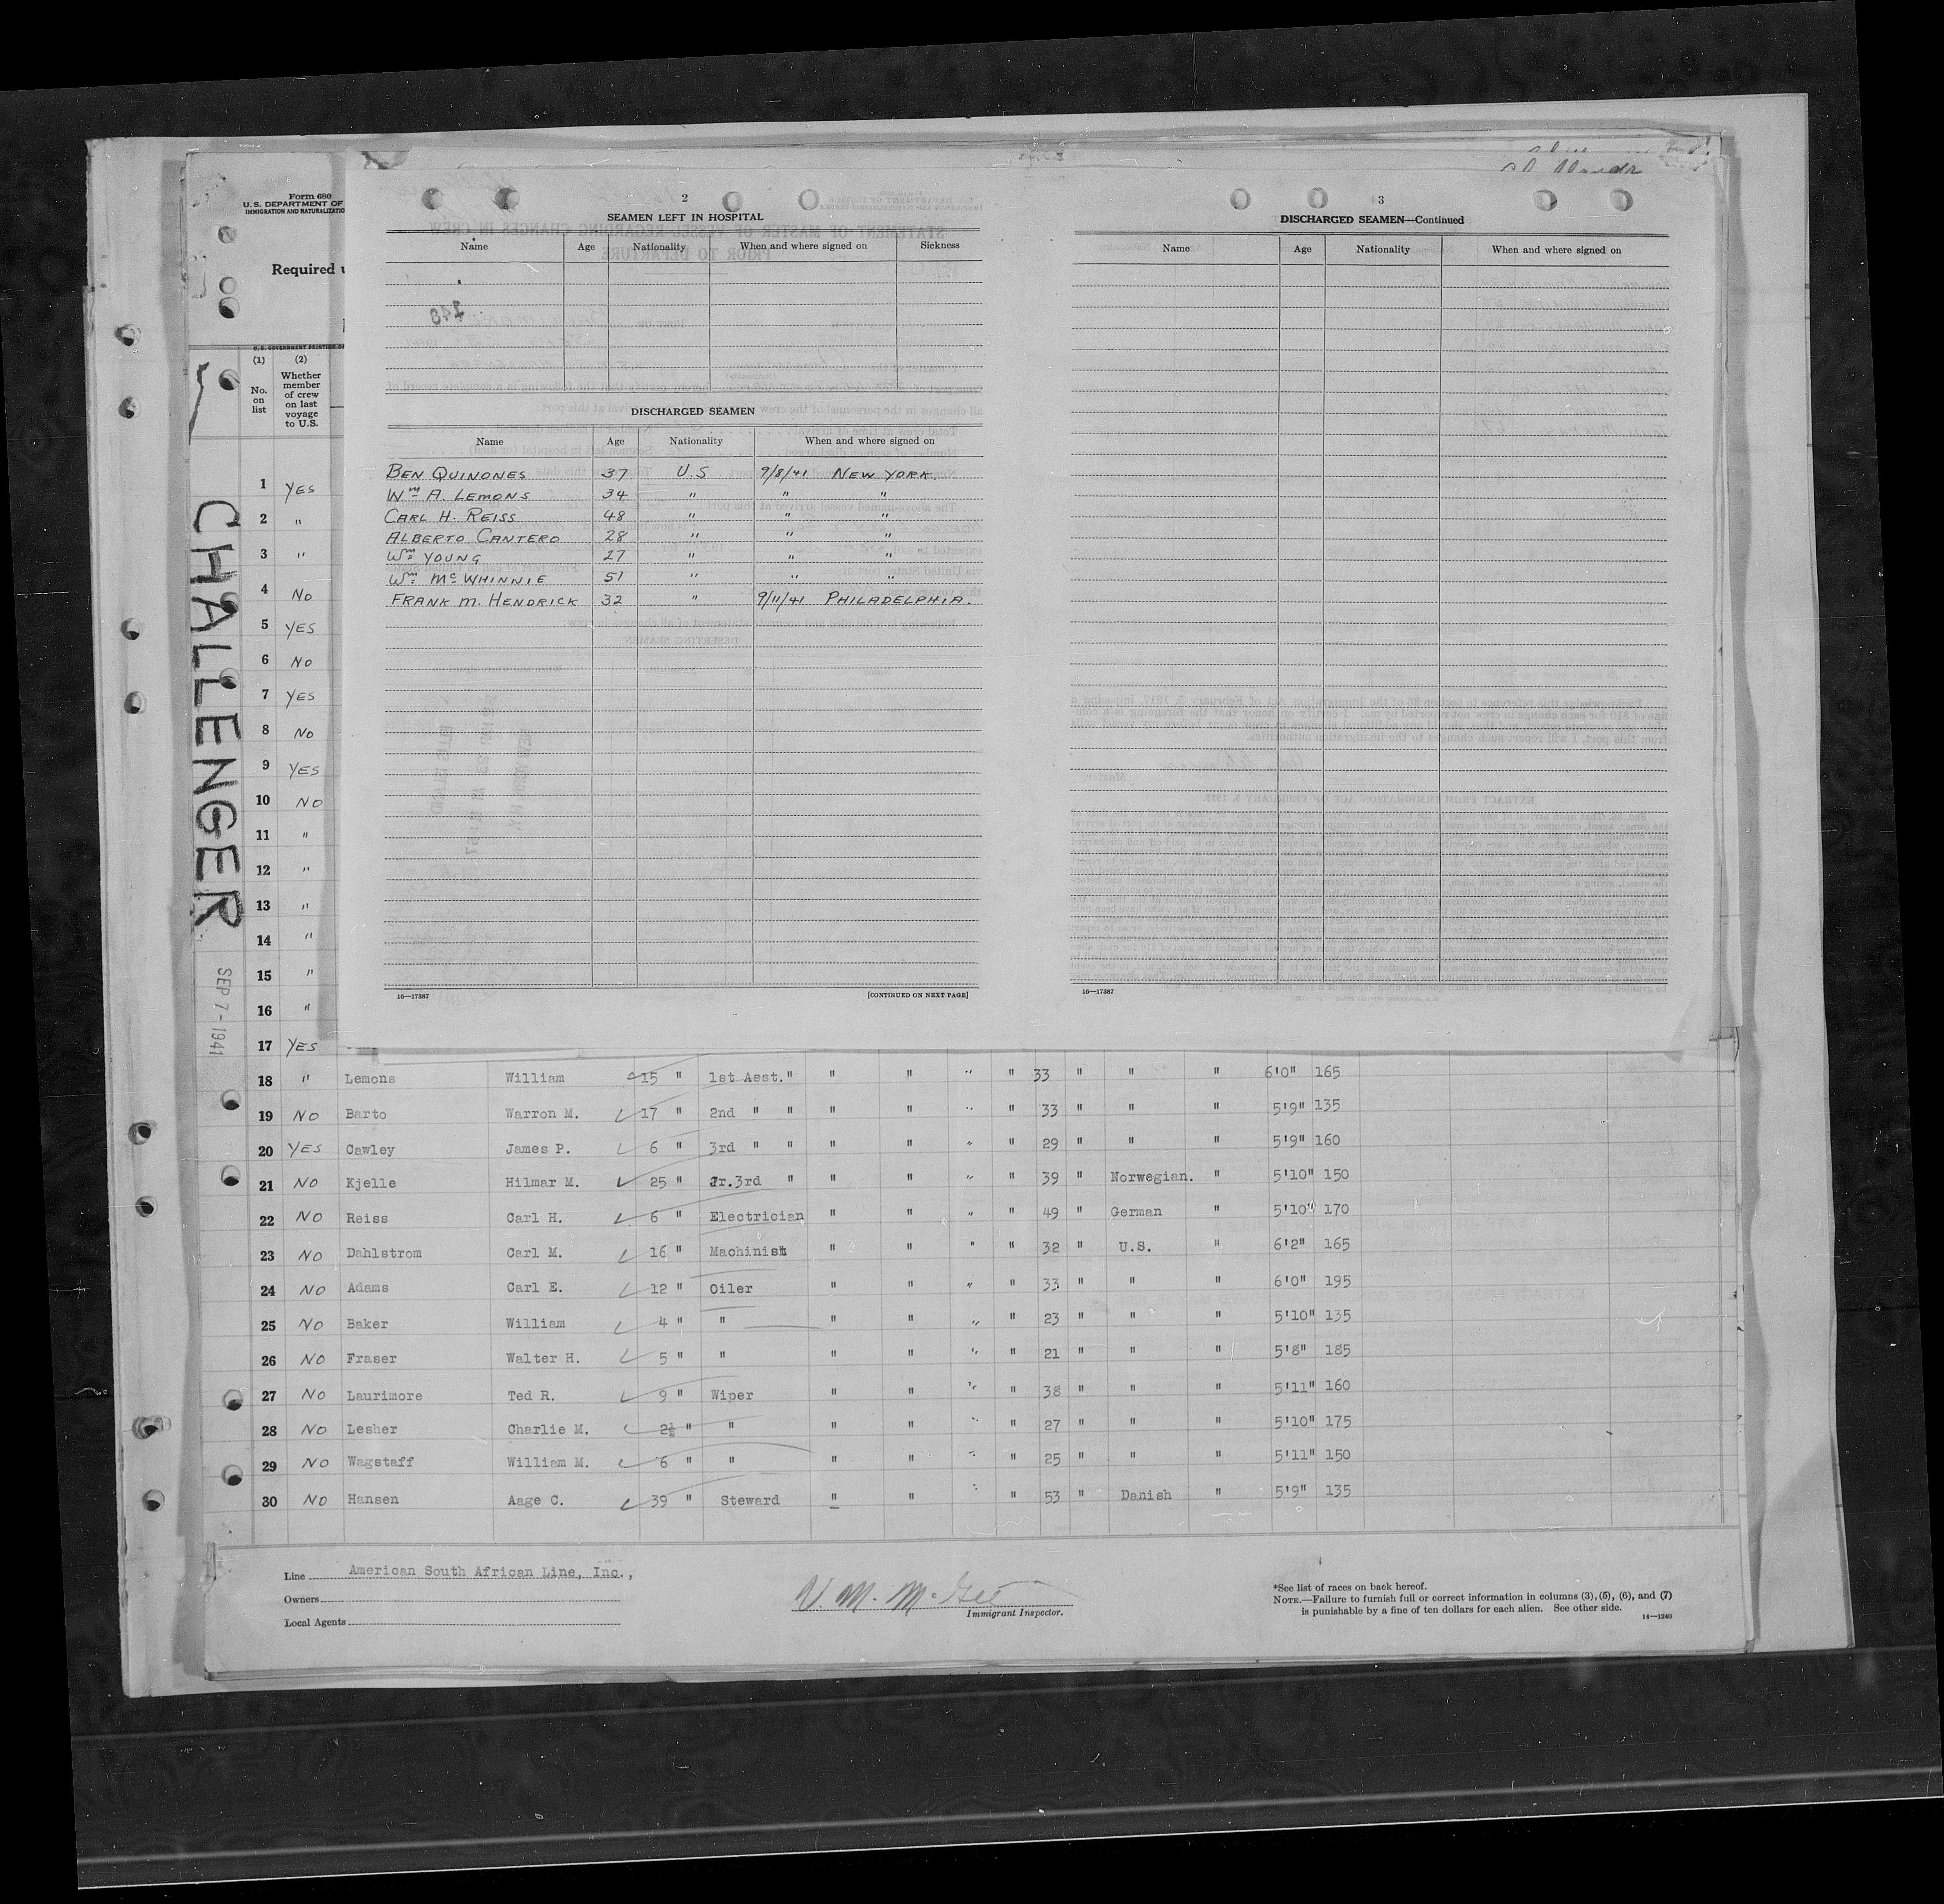 Form 680
U.S. DEPARTMENT OF
IMMIGRATION AND NATURALIZATIO
Required
U.S. GOVERNMENT PRINTING OF
(1) (2)
No. on list Whether member of crew on last voyage to U.S.
CHALLENGER
SEP 7 - 1941
2
SEAMEN LEFT IN HOSPITAL
Name Age Nationality When and where signed on Sickness
DISCHARGED SEAMEN
Name Age Nationality When and where signed on
BEN QUINONES 37 U.S 9/8/41 NEW YORK.
Wm A. LEMONS 34 " " "
CARL H. REISS 48 " " "
ALBERTO CANTERO 28 " " "
Wm YOUNG 27 " " "
Wm McWHINNIE 51 " " "
FRANK M. HENDRICK 32 " 9/11/41 PHILADELPHIA.
16—17387 [CONTINUED ON NEXT PAGE]
3
DISCHARGED SEAMEN—Continued
Name Age Nationality When and where signed on
16—17387
1 YES
2 "
3 "
4 NO
5 YES
6 NO
7 YES
8 NO
9 YES
10 NO
11 "
12 "
13 "
14 "
15 "
16 "
17 YES
18 " Lemons William 15 " 1st Asst." " " " " 33 " " " 6'0" 165
19 NO Barto Warron M. 17 " 2nd " " " " " " 33 " " " 5'9" 135
20 YES Cawley James P. 6 " 3rd " " " " " " 29 " " " 5'9" 160
21 NO Kjelle Hilmar M. 25 " Jr.3rd " " " " " 39 " Norwegian. " 5'10" 150
22 NO Reiss Carl H. 6 " Electrician " " " " 49 " German " 5'10" 170
23 NO Dahlstrom Carl M. 16 " Machinist " " " " 32 " U.S. " 6'2" 165
24 NO Adams Carl E. 12 " Oiler " " " " 33 " " " 6'0" 195
25 NO Baker William 4 " " " " " " 23 " " " 5'10" 135
26 NO Fraser Walter H. 5 " " " " " " 21 " " " 5'8" 185
27 NO Laurimore Ted R. 9 " Wiper " " " " 38 " " " 5'11" 160
28 NO Lesher Charlie M. 2½ " " " " " " 27 " " " 5'10" 175
29 NO Wagstaff William M. 6 " " " " " " 25 " " " 5'11" 150
30 NO Hansen Aage C. 39 " Steward " " " " 53 " Danish " 5'9" 135
Line American South African Line, Inc.,
Owners
Local Agents
V. M. McGee
Immigrant Inspector.
*See list of races on back hereof.
NOTE.—Failure to furnish full or correct information in columns (3), (5), (6), and (7)
is punishable by a fine of ten dollars for each alien. See other side.
14—1240